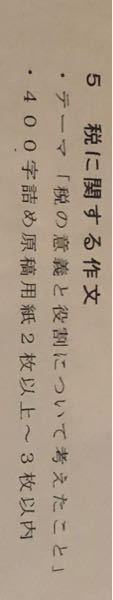 5 税に関する作文
・テーマ「税の意義と役割について考えたこと」
・400字詰め原稿用紙2枚以上～3枚以内